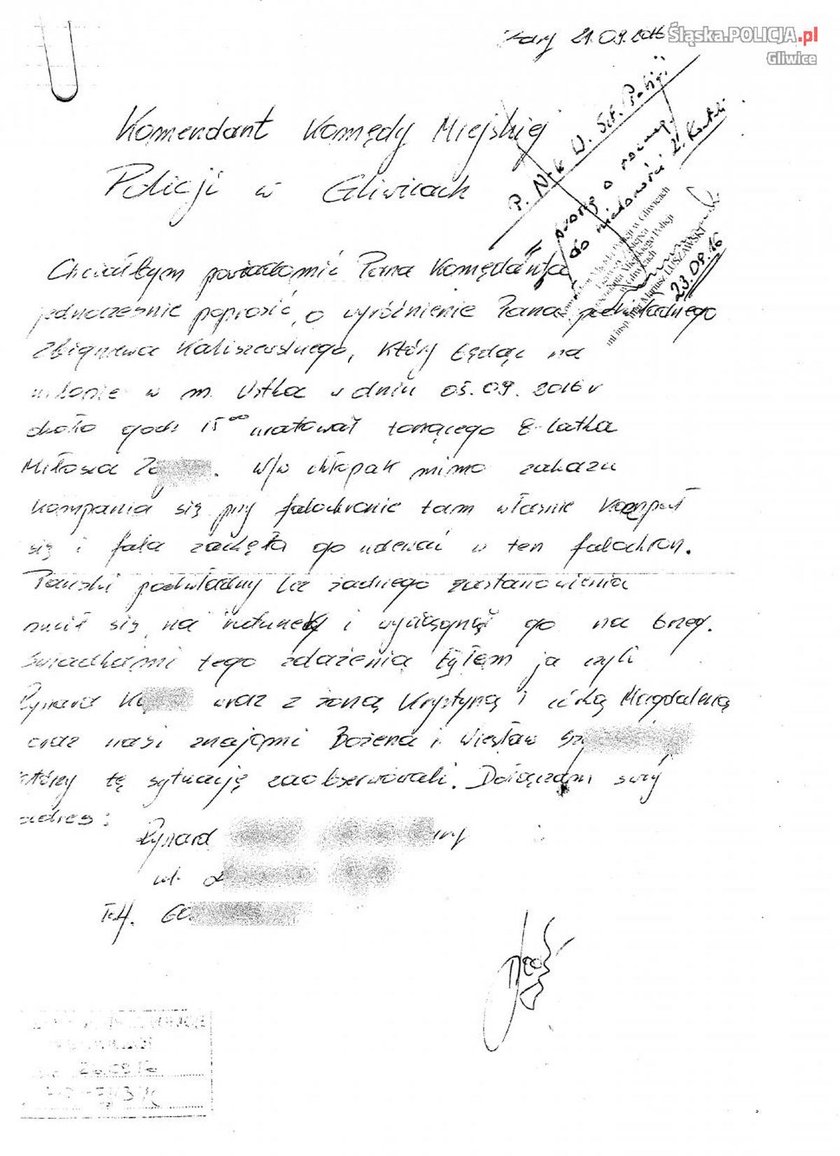 Śląska.POLICJA.pl
Gliwice
Żary 21.09.2016
Komendant Komędy Miejskiej
Policji w Gliwicach
23.09.16
Chciałbym powiadomić Pana Komędanta
jednocześnie poprosić o wyróżnienie Pana podwładnego
Zbigniewa Kaliszewskiego, który będąc na
urlopie w m. Ustka w dniu 05.09.2016 r
około godz 15⁰⁰ uratował tonącego 8-latka
Miłosza Za. W/w chłopak mimo zakazu
kompania się przy falochronie tam właśnie kąpał
się i fala zaczęła go uderzać w ten falochron.
Pański podwładny bez żadnego zastanowienia
rzucił się na ratunek i wyciągnął go na brzeg.
Świadkami tego zdażenia byłem ja czyli
Ryszard K wraz z żoną Krystyną i córką Magdaleną
oraz nasi znajomi Bożena i Wiesław Sz
którzy tę sytuację zaobserwowali. Dołączam swój
adres:
Ryszard
ul.
Tel. 60